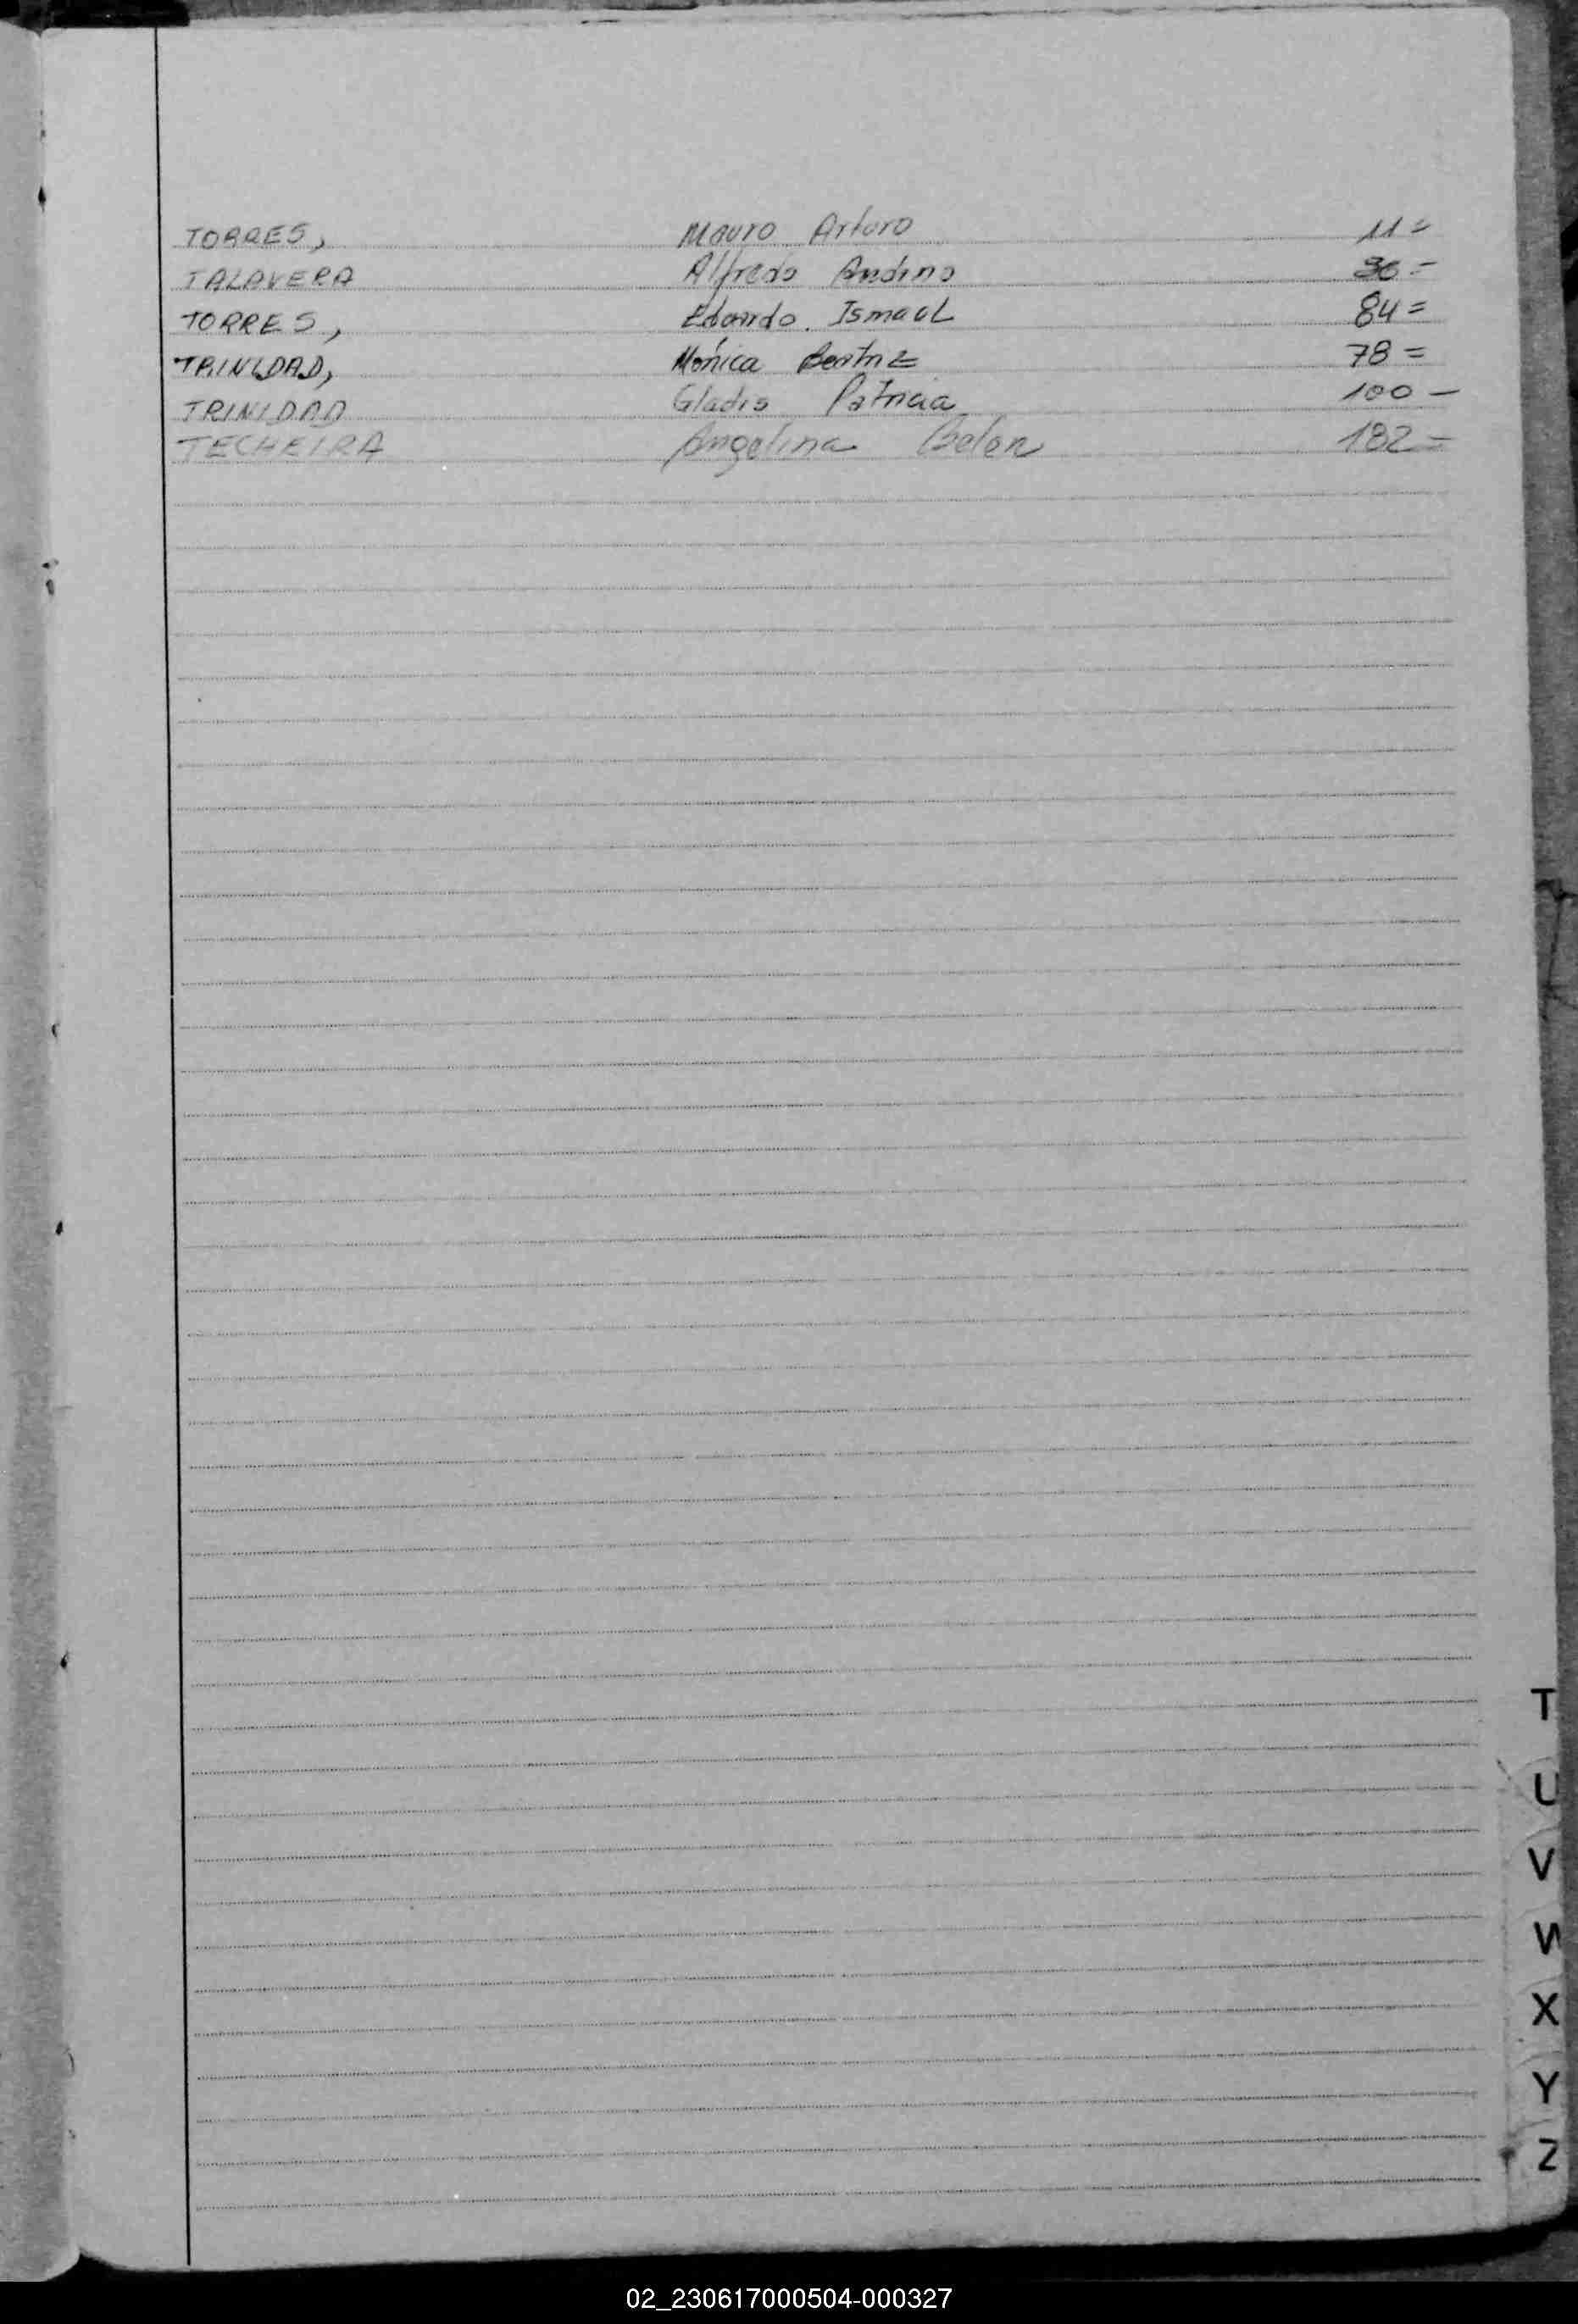 TORRES, Mauro Arturo 11=
TALAVERA Alfredo Andino 36=
TORRES, Eduardo Ismael 84=
TRINIDAD, Mónica Beatriz 78=
TRINIDAD Gladis Patricia 100-
TECHEIRA Angelina Belen 182=
T
U
V
W
X
Y
Z
02_230617000504-000327